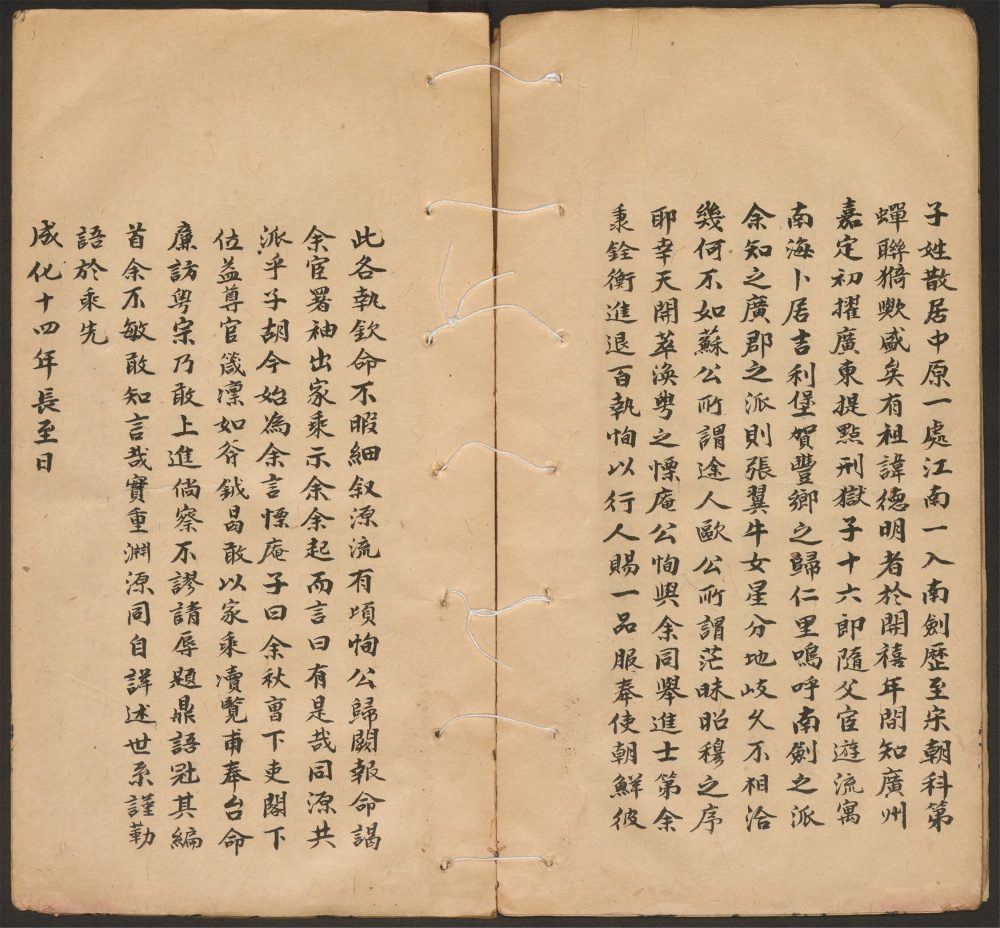 子姓散居中原一處江南一入南劍歷至宋朝科第
蟬聯猗歟盛矣有祖諱德明者於開禧年間知廣州
嘉定初擢廣東提點刑獄子十六郎隨父宦遊流寓
南海卜居吉利堡賀豐鄉之歸仁里嗚呼南劍之派
余知之廣郡之派則張翼牛女星分地岐久不相洽
幾何不如蘇公所謂途人歐公所謂茫昧昭穆之序
耶幸天開萃渙粵之慄庵公恂與余同舉進士第余
秉銓衡進退百執恂以行人賜一品服奉使朝鮮彼
此各執欽命不暇細叙源流有頃恂公歸闕報命謁
余宦署袖出家乘示余余起而言曰有是哉同源共
派乎子胡今始為余言慄庵子曰余秋曹下吏閣下
位益尊官箴凜如斧鉞曷敢以家乘瀆覽甫奉台命
廉訪粵宗乃敢上進倘察不謬請辱題鼎語冠其編
首余不敏敢知言哉實重淵源同自詳述世系謹勒
語於乘先
成化十四年長至日